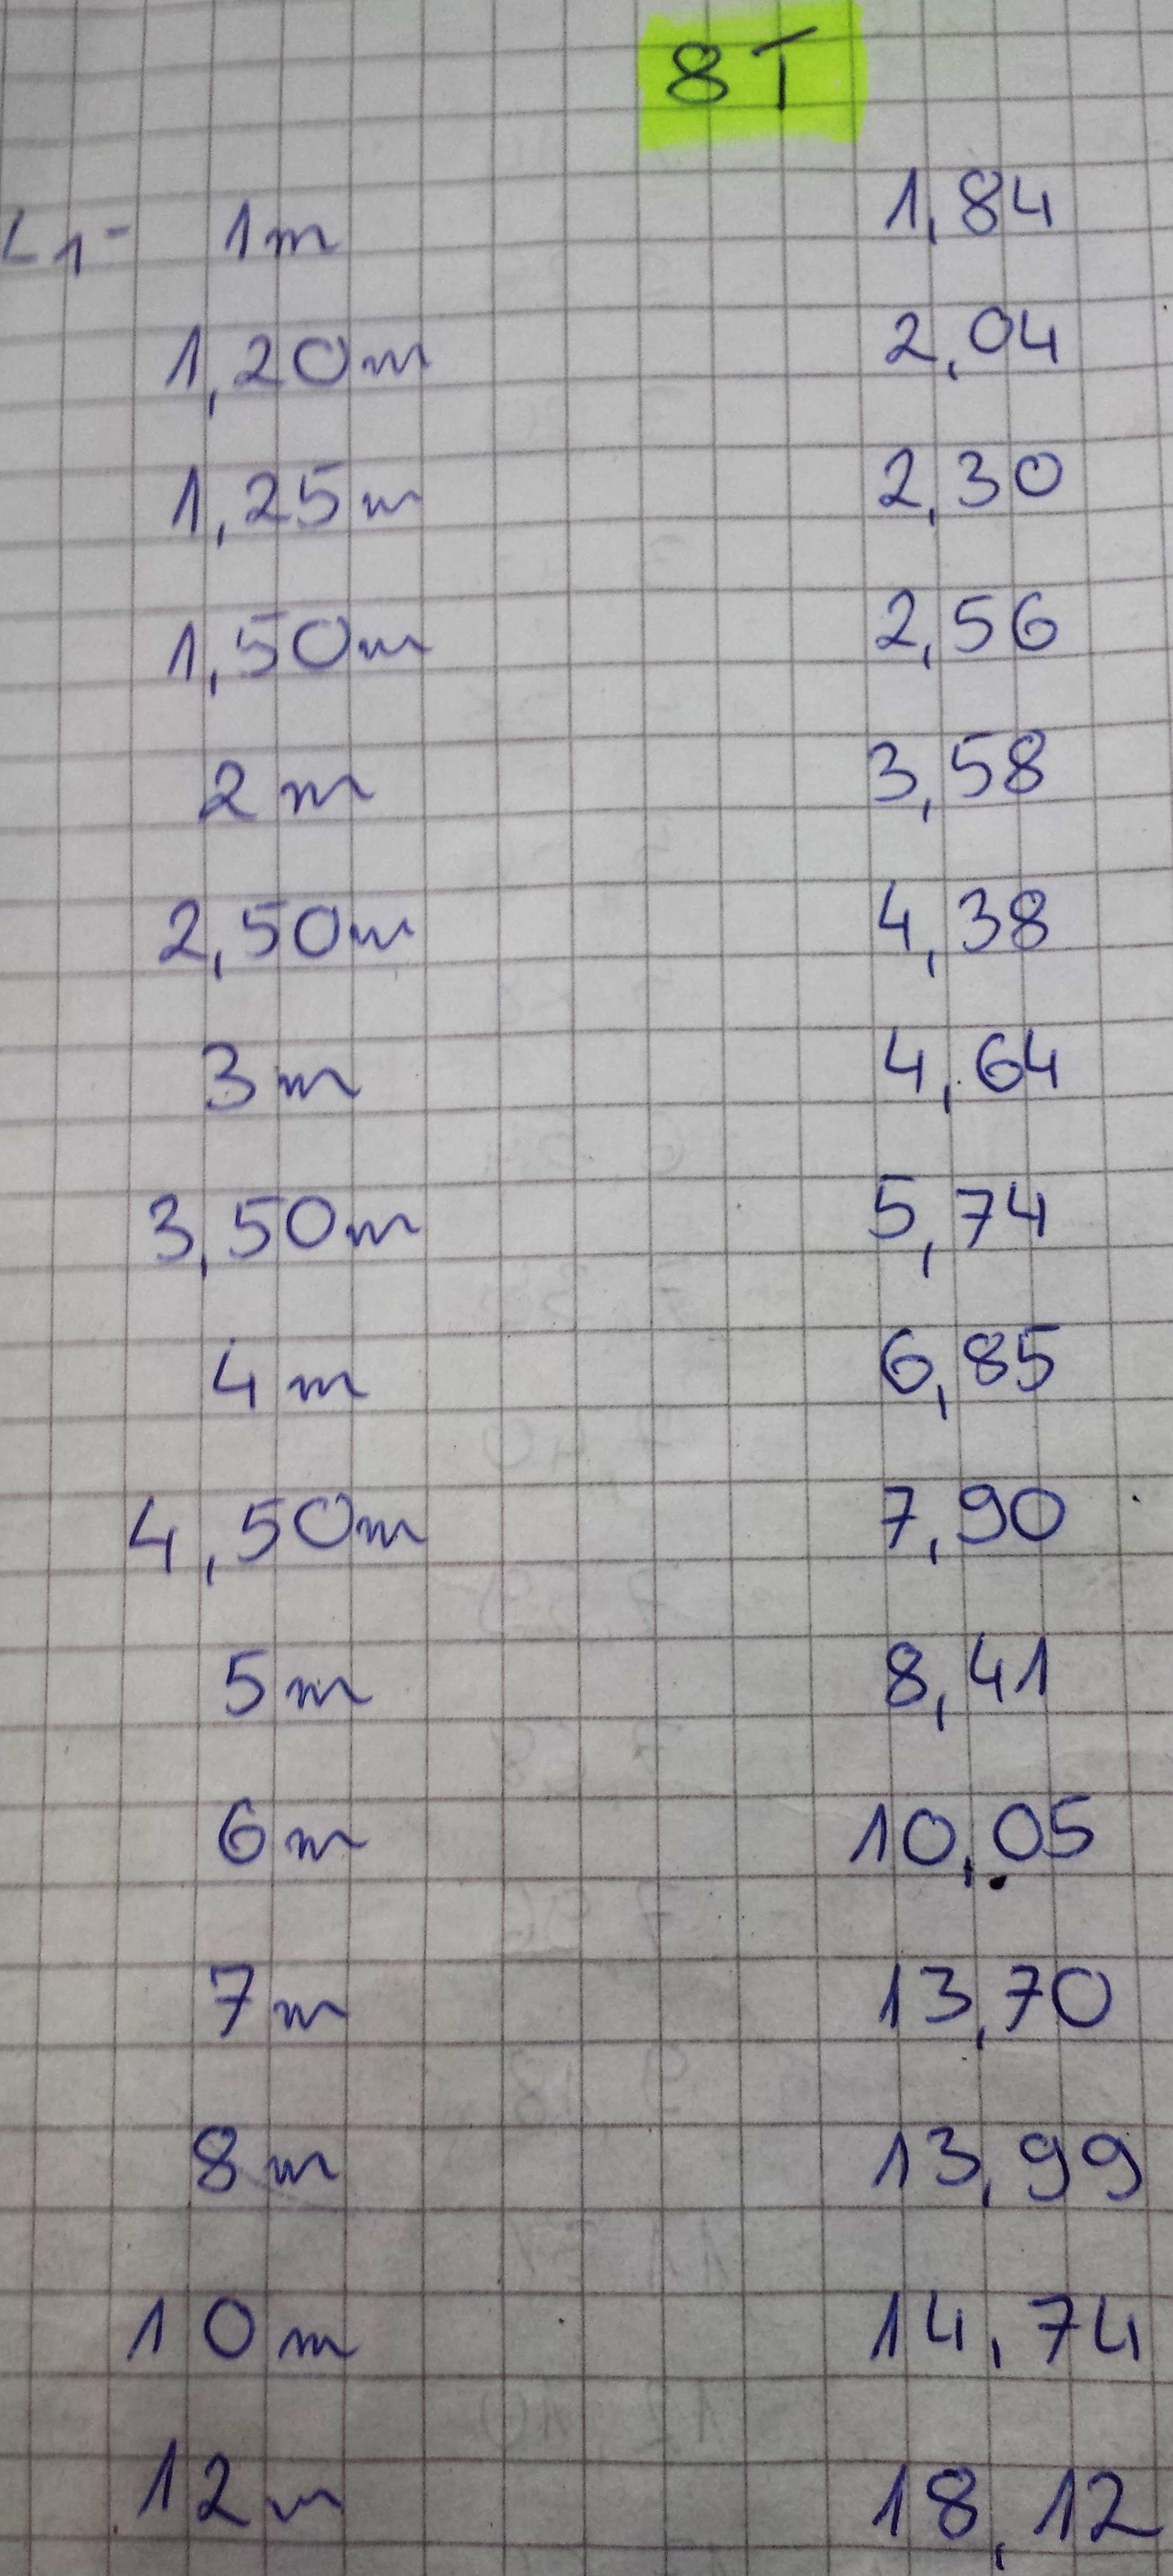 8T
L1- 1m 1,84
1,20m 2,04
1,25m 2,30
1,50m 2,56
2m 3,58
2,50m 4,38
3m 4,64
3,50m 5,74
4m 6,85
4,50m 7,90
5m 8,41
6m 10,05
7m 13,70
8m 13,99
10m 14,74
12m 18,12